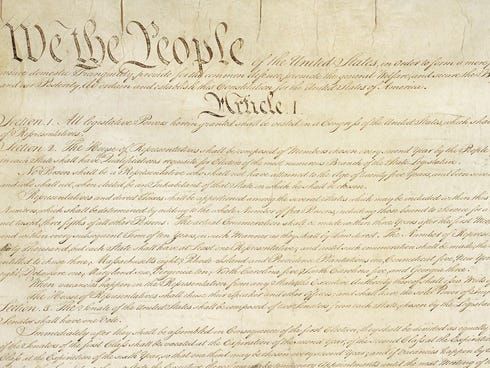 We the People of the United States, in order to form a more
insure domestic Tranquility, provide for the common defence, promote the general Welfare, and secure the
and our Posterity, do ordain and establish this Constitution for the United States of America.
Article. I.
Section. 1. All legislative Powers herein granted shall be vested in a Congress of the United States, which
of Representatives.
Section. 2. The House of Representatives shall be composed of Members chosen every second Year by the People
in each State shall have Qualifications requisite for Electors of the most numerous Branch of the State Legislature.
No Person shall be a Representative who shall not have attained to the Age of twenty five Years, and been seven
and who shall not, when elected, be an Inhabitant of that State in which he shall be chosen.
Representatives and direct Taxes shall be apportioned among the several States which may be included within this
Numbers, which shall be determined by adding to the whole Number of free Persons, including those bound to Service
three fifths of all other Persons. The actual Enumeration shall be made within three Years after the first
and within every subsequent Term of ten Years, in such Manner as they shall by Law direct. The Number of
thirty Thousand, but each State shall have at Least one Representative; and until such enumeration shall be made, the
entitled to chuse three, Massachusetts eight, Rhode-Island and Providence Plantations one, Connecticut five, New
eight, Delaware one, Maryland six, Virginia ten, North Carolina five, South Carolina five, and Georgia three.
When vacancies happen in the Representation from any State, the Executive Authority thereof shall issue Writs
The House of Representatives shall chuse their Speaker and other Officers; and shall have
Section. 3. The Senate of the United States shall be composed of two Senators from each State, chosen by the
Senator shall have one Vote.
Immediately after they shall be assembled in Consequence of the first Election, they shall be divided as equally
of the Senators of the first Class shall be vacated at the Expiration of the second Year, of the second Class at the
Class at the Expiration of the sixth Year, so that one third may be chosen every second Year; and if Vacancies happen by